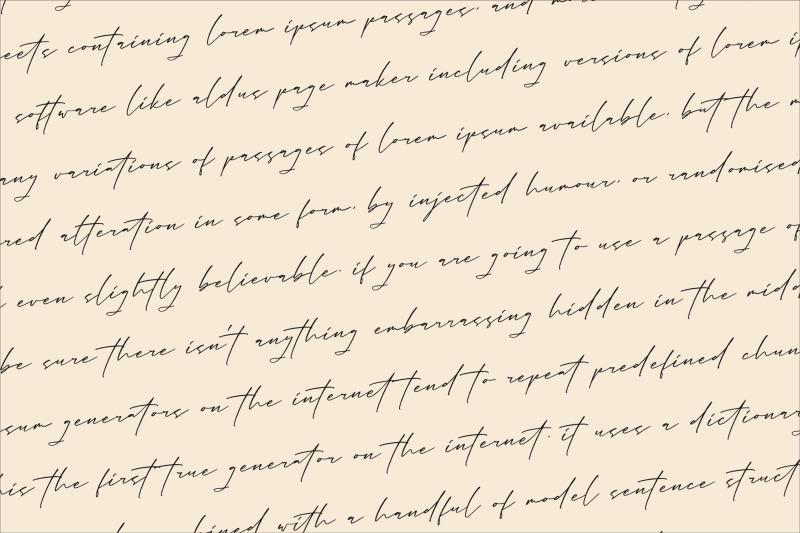 eets containing lorem ipsum passages. and
software like aldus page maker including versions of lorem ip
any variations of passages of lorem ipsum available. but the m
red alteration in some form. by injected humour. or randomised
even slightly believable. if you are going to use a passage of
be sure there isn't anything embarrassing hidden in the midd
sum generators on the internet tend to repeat predefined chun
his the first true generator on the internet. it uses a dictionary
bined with a handful of model sentence struct